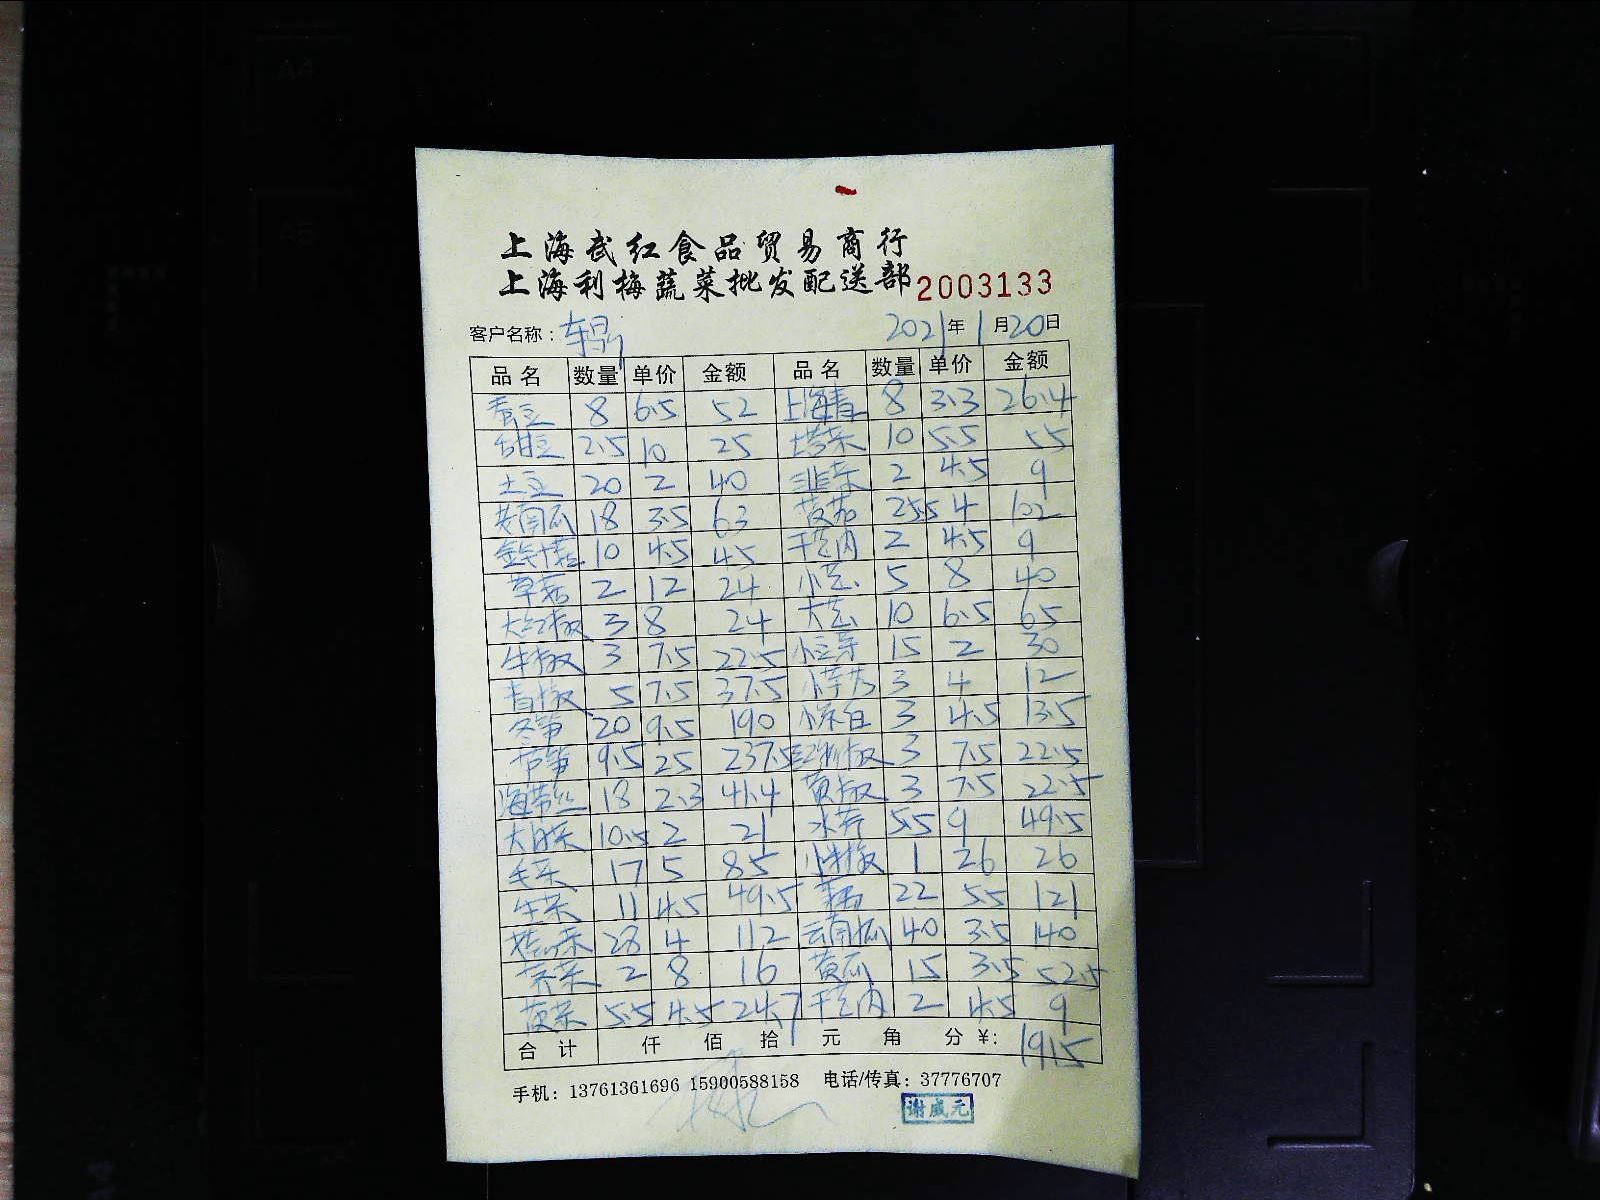 上海武红食品贸易商行
上海利梅蔬菜批发配送部 2003133
客户名称： 2021年1月20日
品名 数量 单价 金额 品名 数量 单价 金额
8 6.5 52 上海青 8 3.3 26.4
甜豆 2.5 10 25 塔菜 10 5.5 55
土豆 20 2 40 韭菜 2 4.5 9
老南瓜 18 3.5 63 25.5 4 102
金针菇 10 4.5 45 2 4.5 9
草菇 2 12 24 5 8 40
大红椒 3 8 24 10 6.5 65
牛椒 3 7.5 22.5 小豆芽 15 2 30
青椒 5 7.5 37.5 3 4 12
冬笋 20 9.5 190 3 4.5 13.5
9.5 25 237.5 3 7.5 22.5
海带丝 18 2.3 41.4 黄椒 3 7.5 22.5
大白菜 10.5 2 21 水芹 5.5 9 49.5
毛菜 17 5 85 小米椒 1 26 26
生菜 11 4.5 49.5 22 5.5 121
28 4 112 云南瓜 40 3.5 140
2 8 16 黄瓜 15 3.5 52.5
菠菜 5.5 4.5 24.7 2 4.5 9
合计 仟 佰 拾 元 角 分 ¥: 1915
手机：13761361696 15900588158 电话/传真：37776707
谢威元